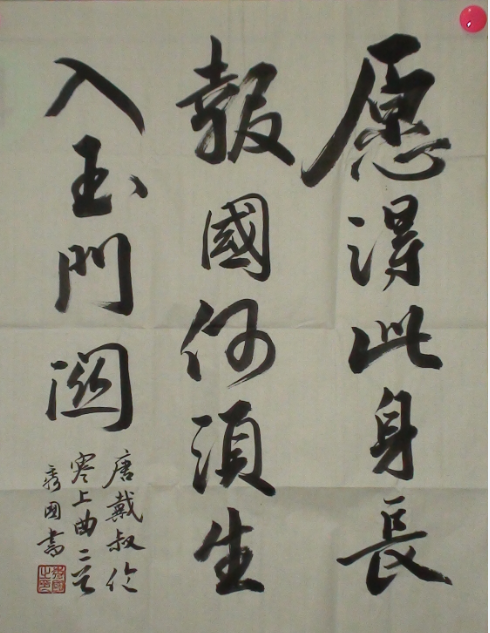 愿得此身長
報國何須生
入玉門關
唐戴叔伦
塞上曲二首
秀國書